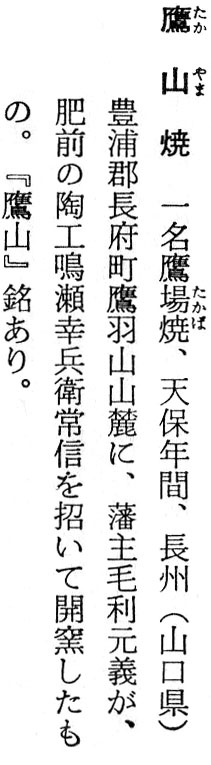 鷹山焼 一名鷹場焼、天保年間、長州(山口県)
豊浦郡長府町鷹羽山山麓に、藩主毛利元義が、
肥前の陶工鳴瀬幸兵衛常信を招いて開窯したも
の。『鷹山』銘あり。
たか
やま
たかば